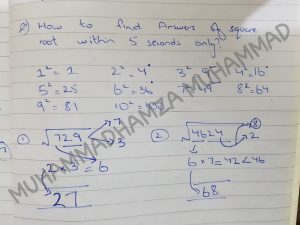 Q) How to find Answers of square
root within 5 seconds only?
1² = 1 2² = 4 3² = 9 4² = 16
5² = 25 6² = 36 8² = 64
9² = 81 10² = 100
① √729 → 7
3
2 × 3 = 6
27
② √4624 → ⑧
2
6 × 7 = 42 < 46
68
MUHAMMADHAMZAMUHAMMAD